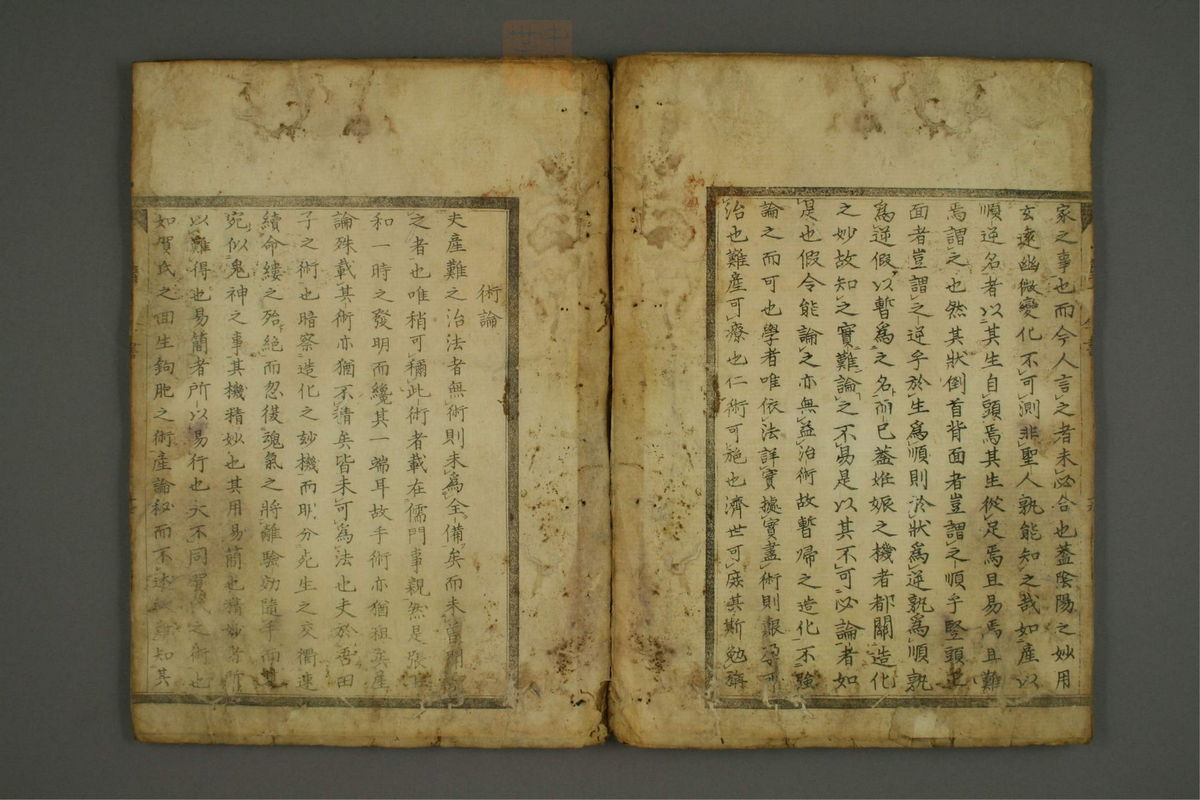 家之事也而今人言之者未必合也蓋陰陽之妙用
玄遠幽微變化不可測非聖人孰能知之哉如産以
順逆名者以其生自頭焉其生從足焉且易焉且難
焉謂之也然其狀倒首背面者豈謂之順乎竪頭正
面者豈謂之逆乎於生爲順則於狀爲逆孰爲順孰
爲逆假以暫爲之名而已蓋姙娠之機者都關造化
之妙故知之實難論之不易是以其不可必論者如
是也假令能論之亦無益治術故暫帰之造化不強
論之而可也學者唯依法詳實據實盡術則艱可
治也難産可療也仁術可施也濟世可庶其斯勉旃
術論
夫産難之治法者無術則未爲全備矣而未曽聞
之者也唯稍可稱此術者載在儒門事親然是張
和一時之發明而纔其一端耳故手術亦猶粗矣産
論殊載其術亦猶不精矣皆未可爲法也夫於吾田
子之術也暗察造化之妙機而明分死生之交衢速
續命縷之殆絶而忽復魂氣之將離驗効隨手而
宛似鬼神之事其機精妙也其用易簡也精妙者所
以難得也易簡者所以易行也大不同賀氏之術也
如賀氏之回生鉤胞之術産論秘而不述難知其